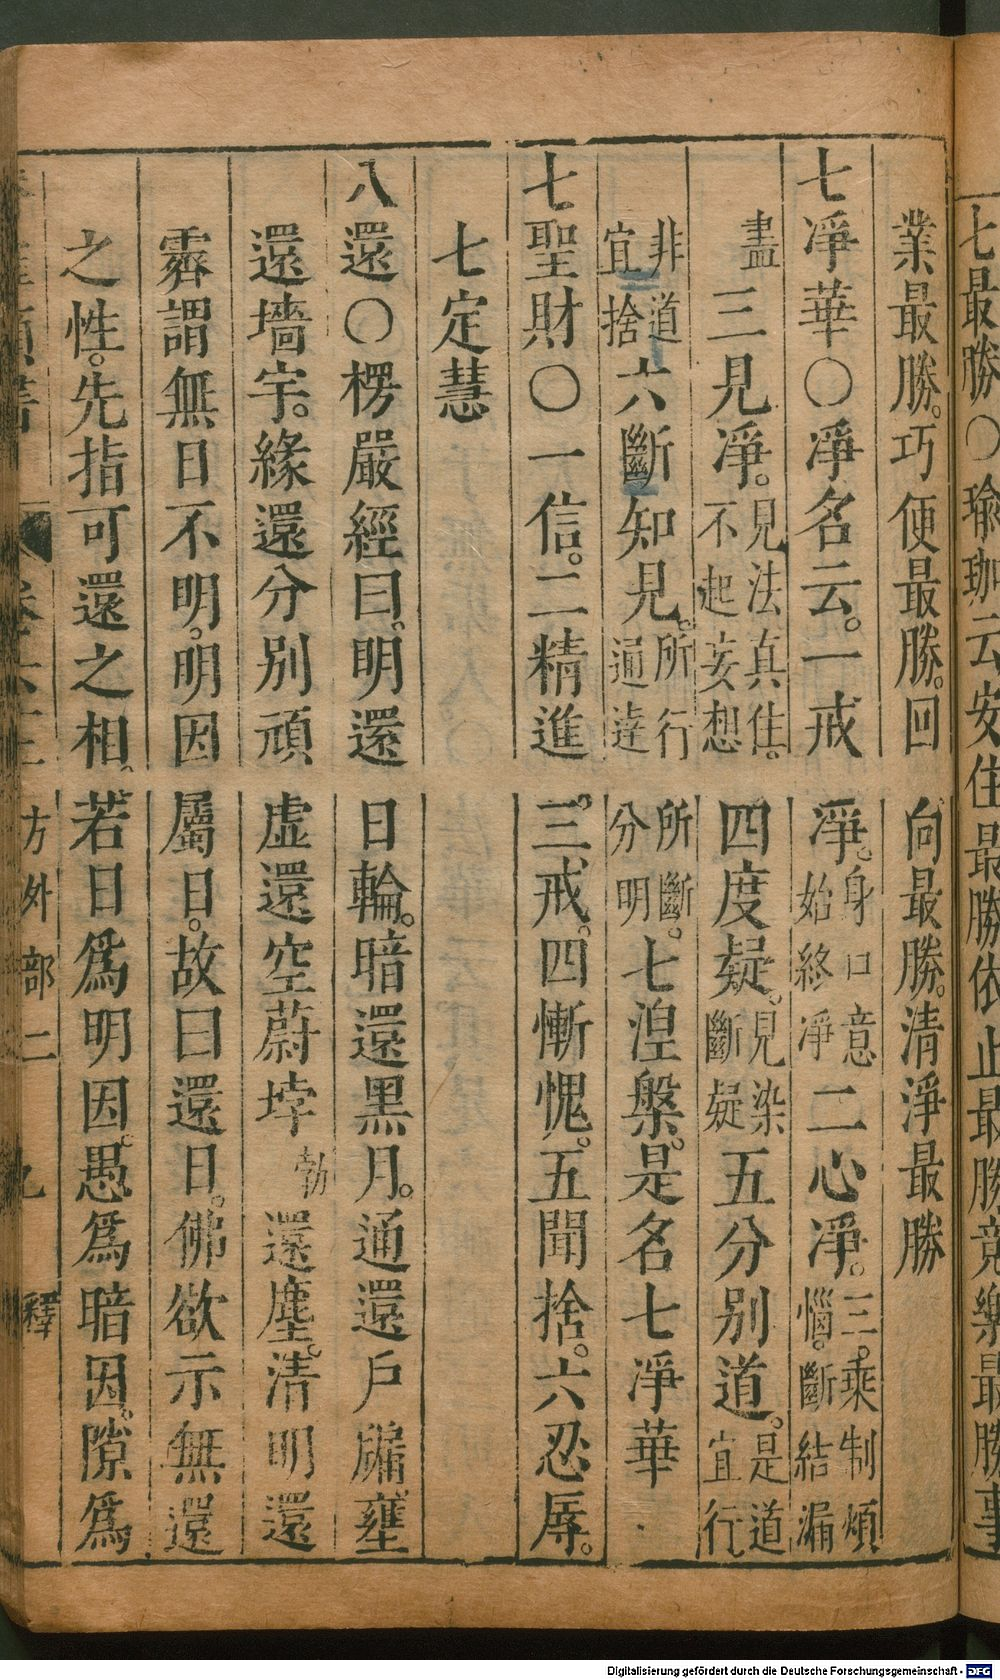 七最勝○瑜珈云安住最勝依止最勝意樂最勝事
業最勝。巧便最勝。回向最勝。清淨最勝
七淨華○淨名云。一戒淨。身口意始終淨二心淨。三乘制煩惱。斷結漏
盡三見淨。見法真住。不起妄想四度疑。見染斷疑五分別道。是道宜行
非道宜捨六斷知見。所行通達所斷分明。七涅槃。是名七淨華
七聖財○一信。二精進。三戒。四慚愧。五聞捨。六忍辱。
七定慧
八還○楞嚴經曰。明還日輪。暗還黑月。通還戶牖壅
還墻宇。緣還分別頑虛還空蔚㪍勃還塵。清明還
霽謂無日不明。明因屬日。故曰還日。佛欲示無還
之性。先指可還之相。若日爲明因。愚爲暗因。隙爲
方外部二
釋
Digitalisierung gefördert durch die Deutsche Forschungsgemeinschaft - DFG